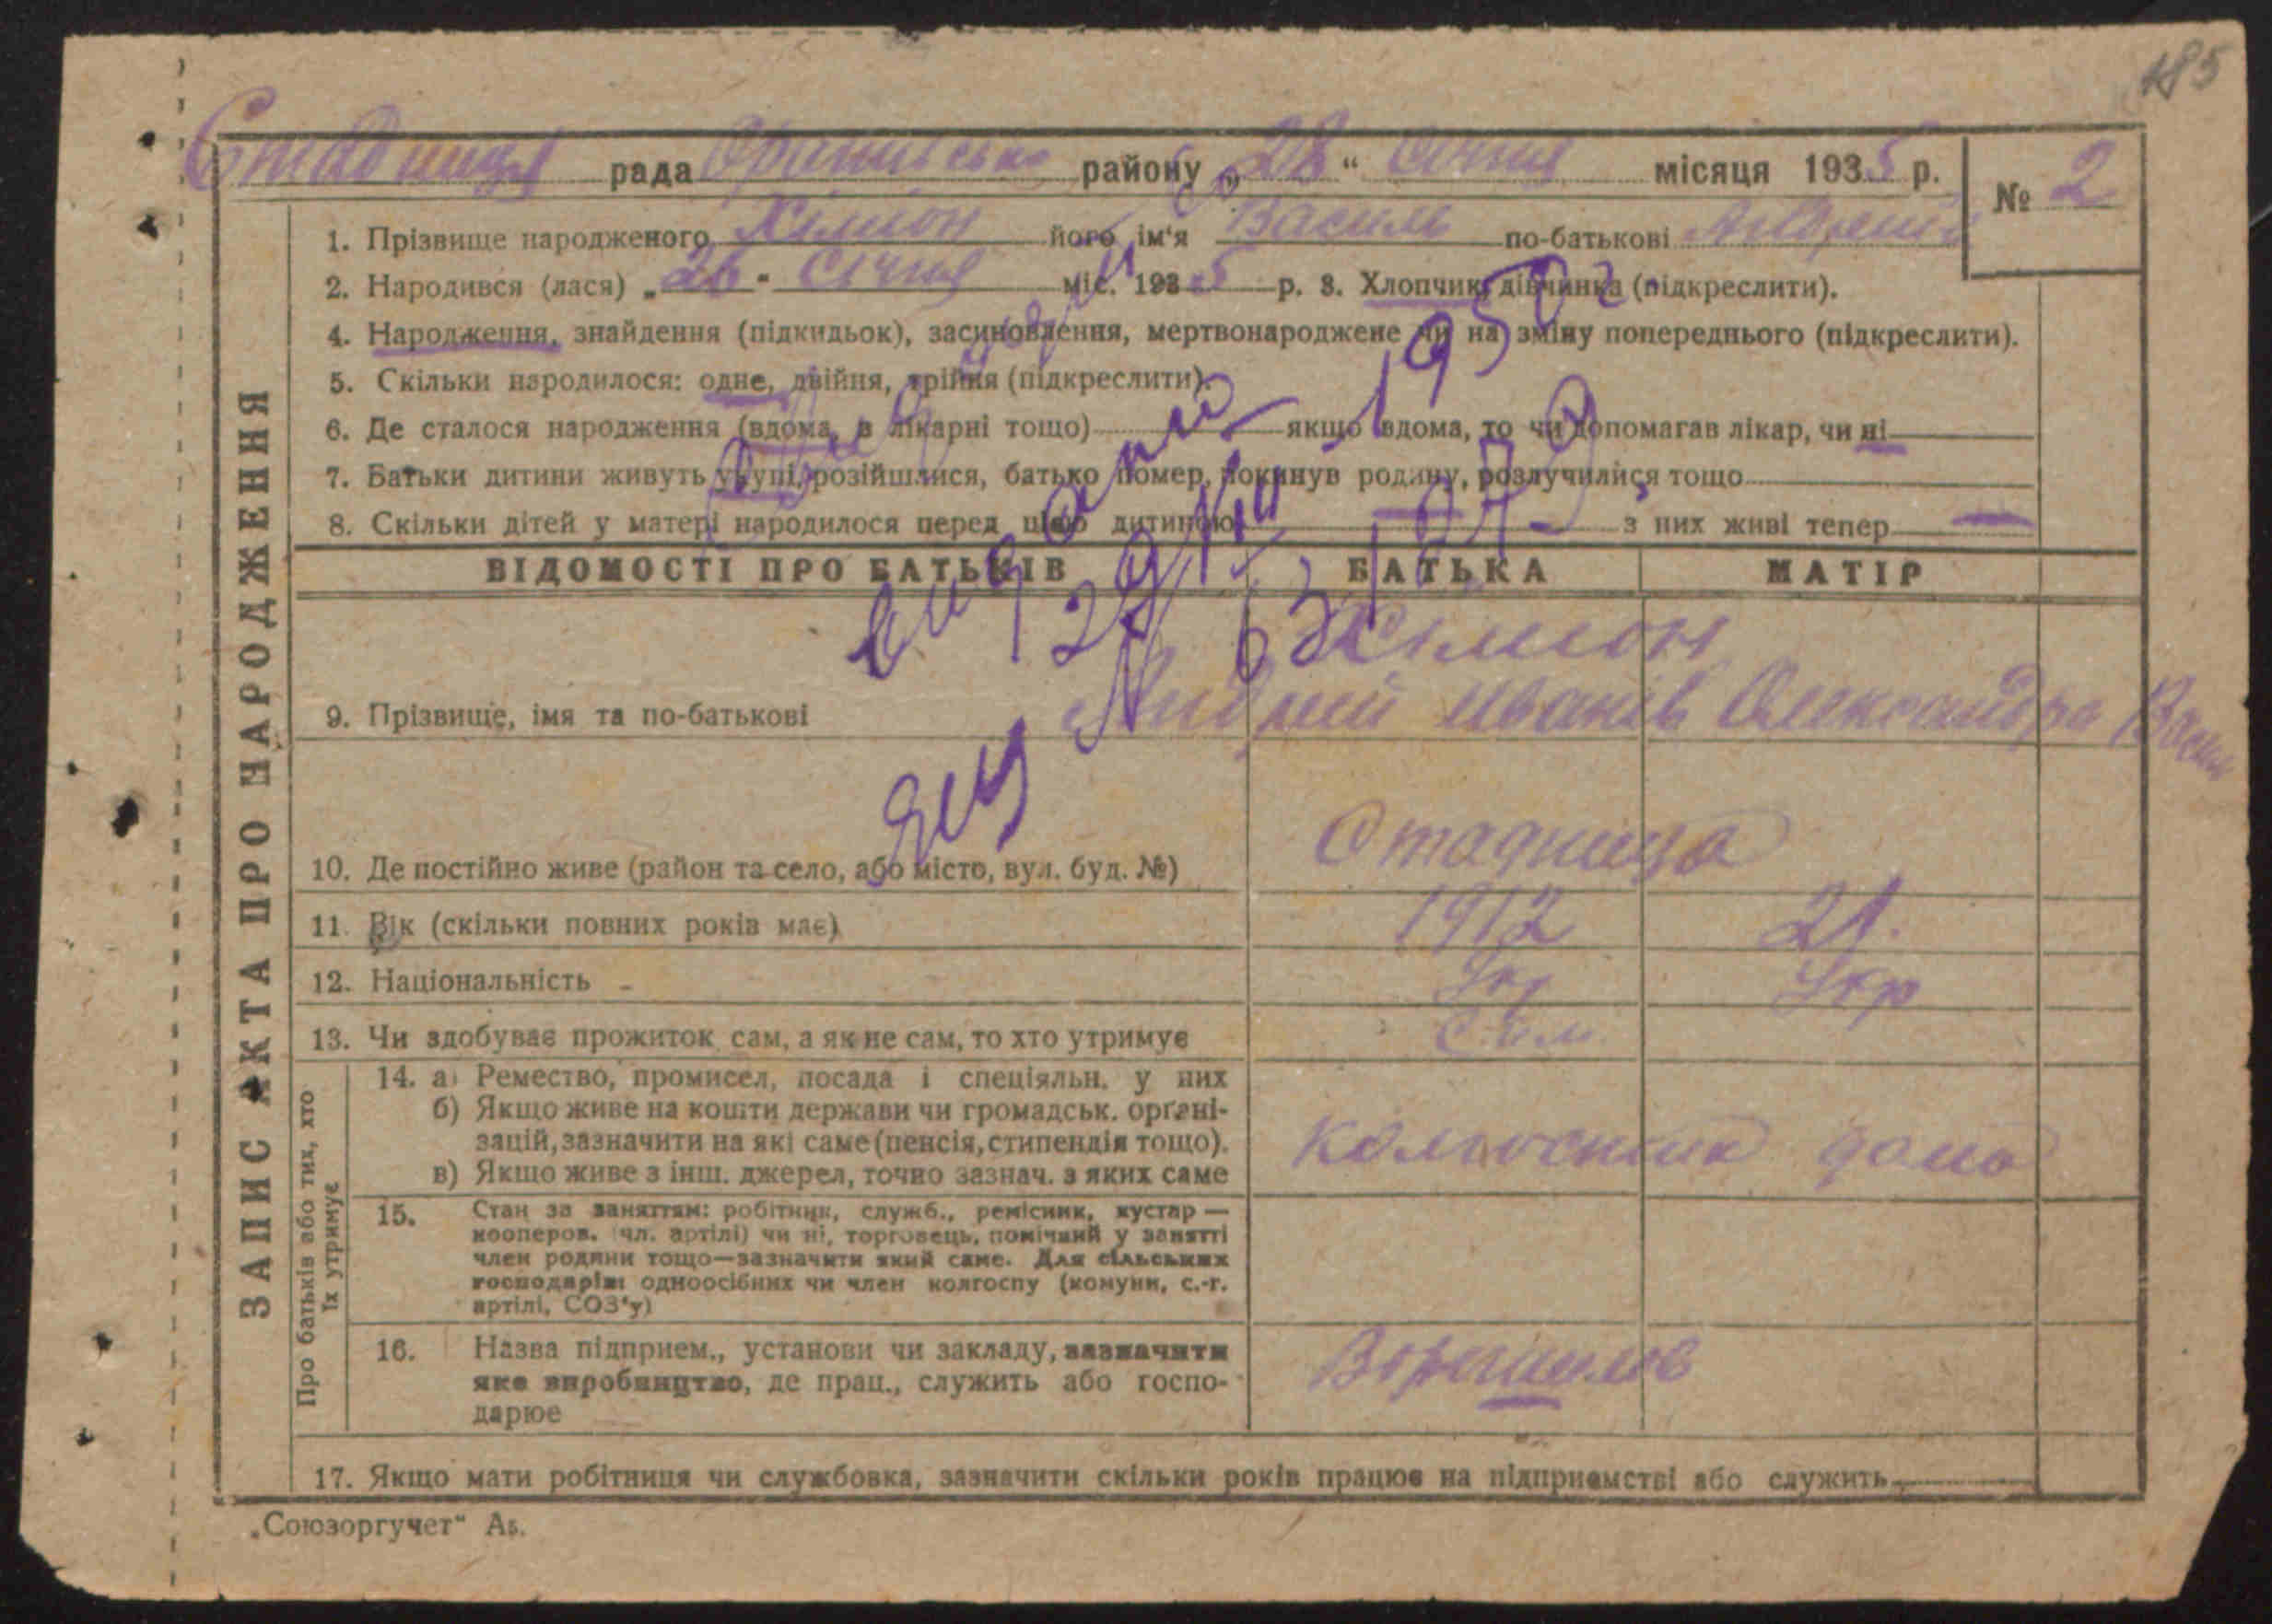 185
Стадниця рада району „28“ Січня місяця 1935 р.
№ 2
1. Прізвище народженого Хіміон його ім'я Василь по-батькові Андреїв
2. Народився (лася) „26“ Січня міс. 1935 р. 3. Хлопчик, дівчинка (підкреслити).
4. Народження, знайдення (підкидьок), засиновлення, мертвонароджене чи на зміну попереднього (підкреслити).
5. Скільки народилося: одне, двійня, трійня (підкреслити).
6. Де сталося народження (вдома, в лікарні тощо) якщо вдома, то чи допомагав лікар, чи ні
7. Батьки дитини живуть укупі, розійшлися, батько помер, покинув родину, розлучилися тощо
8. Скільки дітей у матері народилося перед цією дитиною — з них живі тепер —
ВІДОМОСТІ ПРО БАТЬКІВ БАТЬКА МАТІР
Хіміон
9. Прізвище, імя та по-батькові Андрей Иванів Олександра Васил
10. Де постійно живе (район та село, або місто, вул. буд. №) Стадниця
11. Вік (скільки повних років має) 1912 21.
12. Національність - Укр Укр
13. Чи здобуває прожиток сам, а як не сам, то хто утримує сам.
14. а) Ремество, промисел, посада і спеціяльн. у них
б) Якщо живе на кошти держави чи громадськ. орґані-
зацій, зазначити на які саме (пенсія, стипендія тощо).
в) Якщо живе з інш. джерел, точно зазнач. з яких саме
Колгоспник дома
15. Стан за заняттям: робітник, служб., ремісник, кустар —
кооперов. (чл. артілі) чи ні, торговець, помічний у занятті
член родини тощо—зазначити який саме. Для сільських
господарів: одноосібник чи член колгоспу (комуни, с.-г.
артілі, СОЗ'у)
16. Назва підприєм., установи чи закладу, зазначити
яке виробництво, де прац., служить або госпо-
дарює
Ворошилов
17. Якщо мати робітниця чи службовка, зазначити скільки років працює на підприємстві або служить
ЗАПИС АКТА ПРО НАРОДЖЕННЯ
Про батьків або тих, хто
їх утримує
„Союзоргучет“ А5.